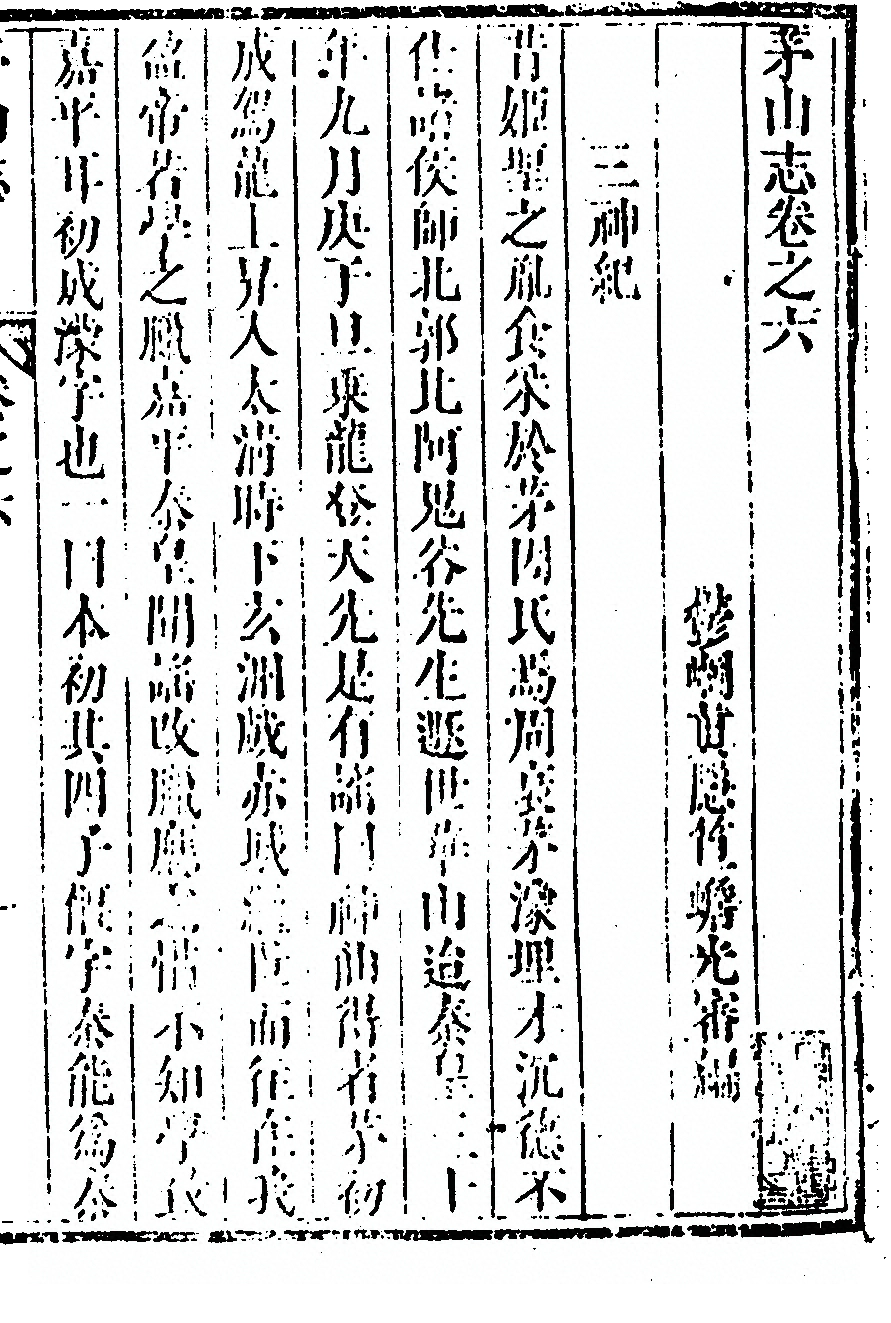 茅山志卷之六
三神紀
昔姬聖之胤食采於茅因氏焉周衰茅濛埋才沉德不
仕諸侯師北郭北阿鬼谷先生遯世華山迨秦皇三十
年九月庚子旦乘龍登天先是有謠曰神仙得者茅初
成駕龍上昇入太清時下玄洲戲赤城繼世而往在我
盈帝若學之臘嘉平秦皇聞謠改臘應之惜不知學玄
嘉平耳初成濛字也一曰本初其四子偃字泰能為秦